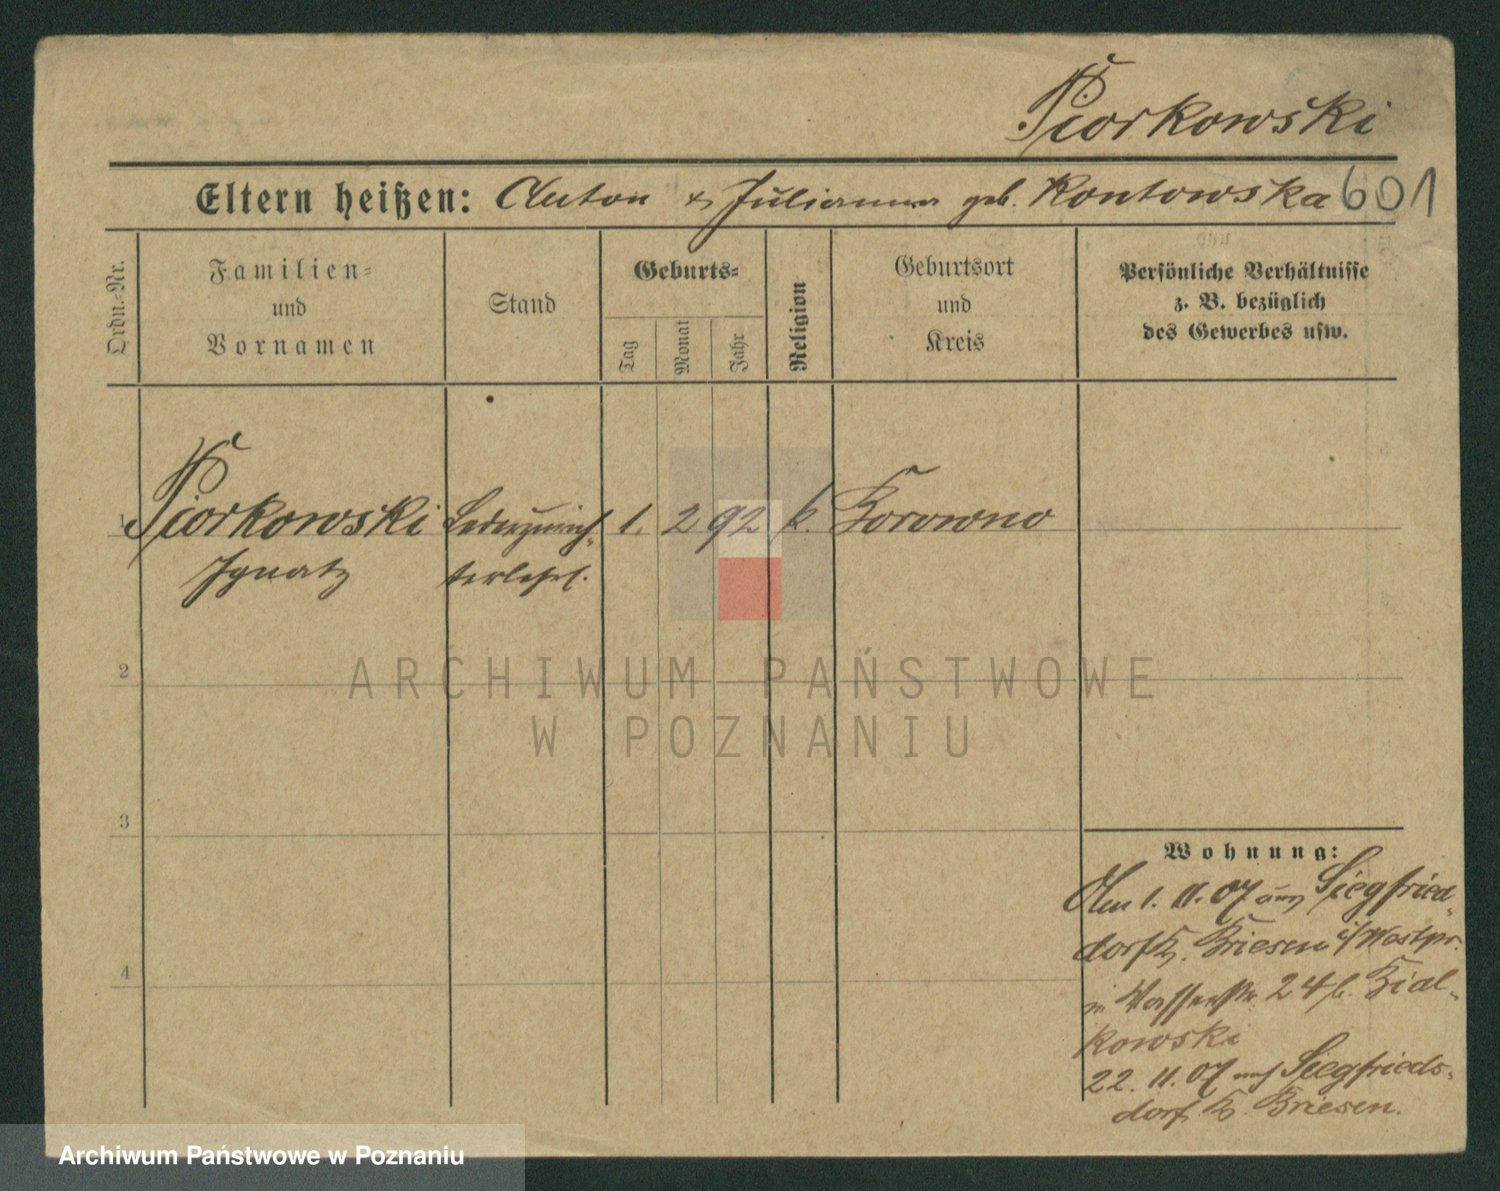 Piorkowski
Eltern heißen: Anton & Julianna geb. Kontowska 601
Ordn.-Nr.
Familien-
und
Vornamen
Stand
Geburts-
Tag
Monat
Jahr
Religion
Geburtsort
und
Kreis
Persönliche Verhältnisse
z. B. bezüglich
des Gewerbes usw.
1 Piorkowski Lederzurich- 1. 2 92 k.
Ignatz terlehrl.
2
ARCHIWUM PAŃSTWOWE
W POZNANIU
3
4
Wohnung:
Am 1. 11. 07 aus Siegfried-
dorf K. Briesen i/Westpr.
in Wasserstr. 24 b. Bial-
kowski
22. 11. 07 nach Siegfrieds-
dorf K. Briesen.
Archiwum Państwowe w Poznaniu